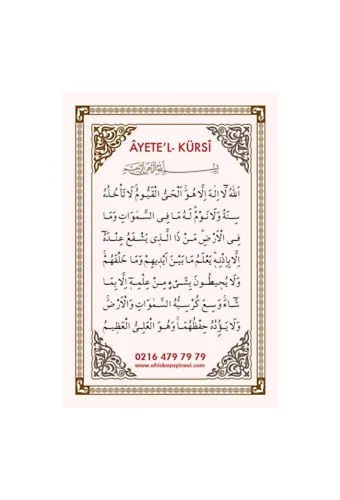 ÂYETE'L- KÜRSÎ
بِسْمِ اللهِ الرَّحْمٰنِ الرَّحِيمِ
اَللهُ لَٓا اِلٰهَ اِلَّا هُوَۚ اَلْحَيُّ الْقَيُّومُۚ لَا تَأْخُذُهُ
سِنَةٌ وَلَا نَوْمٌۜ لَهُ مَا فِي السَّمٰوَاتِ وَمَا
فِي الْاَرْضِۜ مَنْ ذَا الَّذِي يَشْفَعُ عِنْدَهُٓ
اِلَّا بِاِذْنِهِۜ يَعْلَمُ مَا بَيْنَ اَيْدِيهِمْ وَمَا خَلْفَهُمْۚ
وَلَا يُحِيطُونَ بِشَيْءٍ مِنْ عِلْمِهِٓ اِلَّا بِمَا
شَٓاءَۚ وَسِعَ كُرْسِيُّهُ السَّمٰوَاتِ وَالْاَرْضَۚ
وَلَا يَؤُ۫دُهُ حِفْظُهُمَاۚ وَهُوَ الْعَلِيُّ الْعَظِيمُ
0216 479 79 79
www.ahiskayayinevi.com